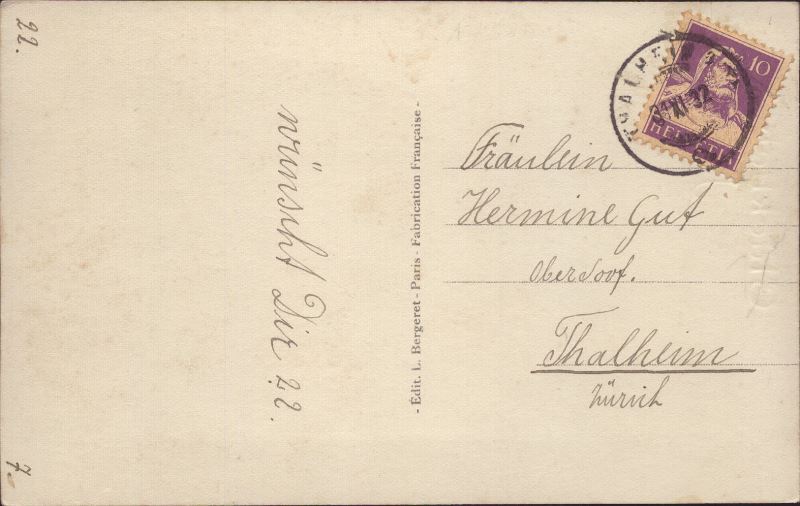 22.
wünscht Dir ??.
7.
- Édit. L. Bergeret - Paris - Fabrication Française -
THALHEIM
XI. 32
10
HELVETIA
Fräulein
Hermine Gut
Oberdorf.
Thalheim
Zürich